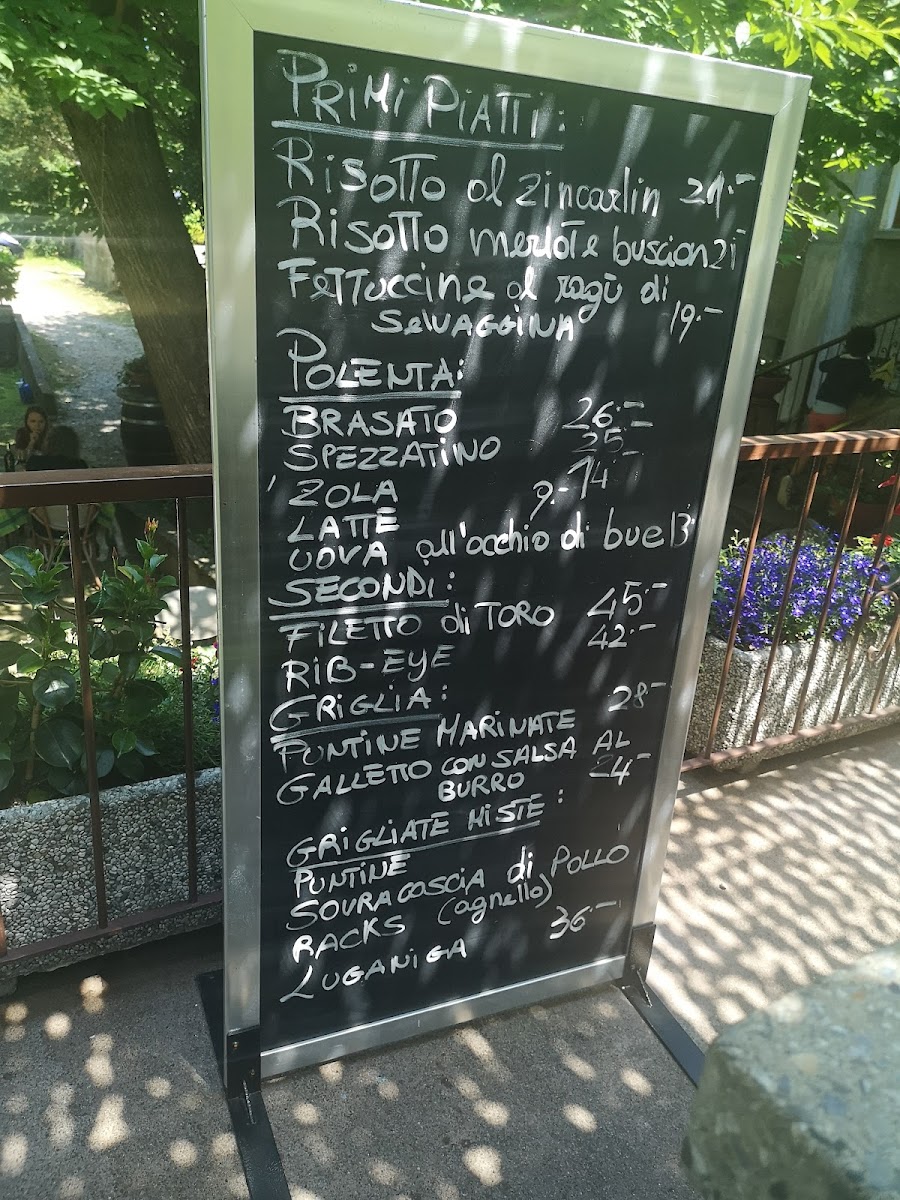 PRIMI PIATTI:
Risotto al zincarlin 21.-
Risotto merlot e buscion 21
Fettuccine al ragù di
SELVAGGINA 19.-
POLENTA:
BRASATO 26.-
SPEZZATINO 25
ZOLA 14-
LATTE 9.-
UOVA all'occhio di bue 13
SECONDI:
FILETTO di TORO 45.-
RIB-EYE 42.-
GRIGLIA:
PUNTINE MARINATE 28-
GALLETTO CON SALSA AL
BURRO 24-
GRIGLIATE MISTE:
PUNTINE
SOVRACOSCIA di POLLO
RACKS (agnello)
LUGANIGA 36.-